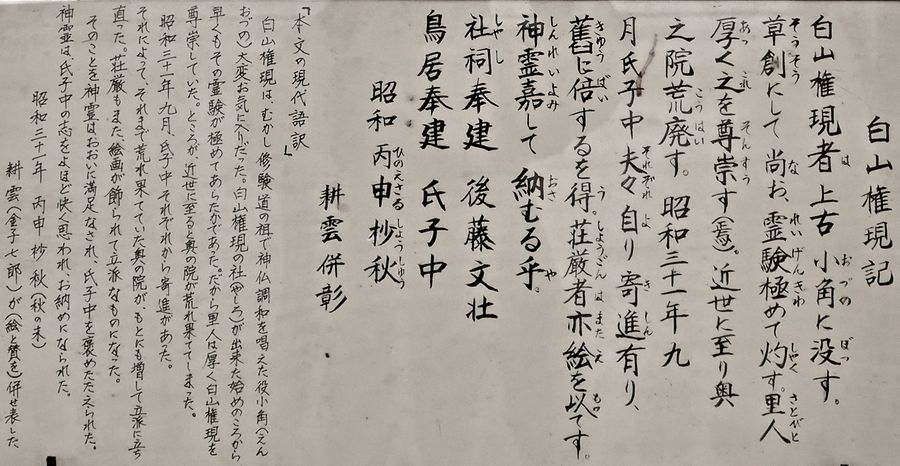 白山権現記
白山権現者上古 小角に没す。
草創にして 尚お、霊験極めて灼す。里人
厚く之を尊崇す(焉)。近世に至り奥
之院荒廃す。昭和三十一年九
月氏子中 夫々自り寄進有り、
舊に倍するを得。荘厳者亦絵を以てす。
神霊嘉して 納むる乎。
社祠奉建 後藤文壮
鳥居奉建 氏子中
昭和 丙申杪秋
耕雲併彰
「本文の現代語訳」
白山権現は、むかし修験道の祖で神仏調和を唱えた役小角(えん
おづの)大変お気に入りだった。白山権現の社(やしろ)が出来た始めのころから
早くもその霊験が極めてあらたかであった。だから里人は厚く白山権現を
尊崇していた。ところが、近世に至ると奥の院が荒れ果ててしまった。
昭和三十一年九月、氏子中それぞれから寄進があった。
それによって、それまで荒れ果てていた奥の院が、もとにも増して立派に立ち
直った。荘厳もまた、絵画が飾られて立派なものになった。
そのことを神霊はおおいに満足なされ、氏子中を褒めたたえられた。
神霊は、氏子中の志をよほど快く思われ、お納めになられた。
昭和三十一年 丙申 杪秋(秋の末)
耕雲(金子七郎)が(絵と賛を)併せ表した